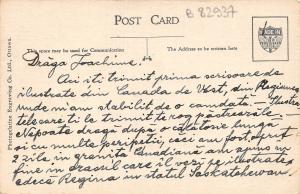 POST CARD
B 82937
MADE IN
This space may be used for Communication
The Address to be written here
Photogelatine Engraving Co. Ltd., Ottawa.
Draga Joachime.
Aci iti trimit prima scrisoare de
ilustrate din Canada de Vest, din Regiunea
unde m'am stabilit de o camdata.
te rog pastreaza-le
Nepoate draga dupa o calatorie lunga
si cu multe peripetii, caci am fost oprit
3 zile in granita Canadiana am ajuns in
fine in orasul care il vezi pe ilustrate
adeca Regina in statul Saskatchewan